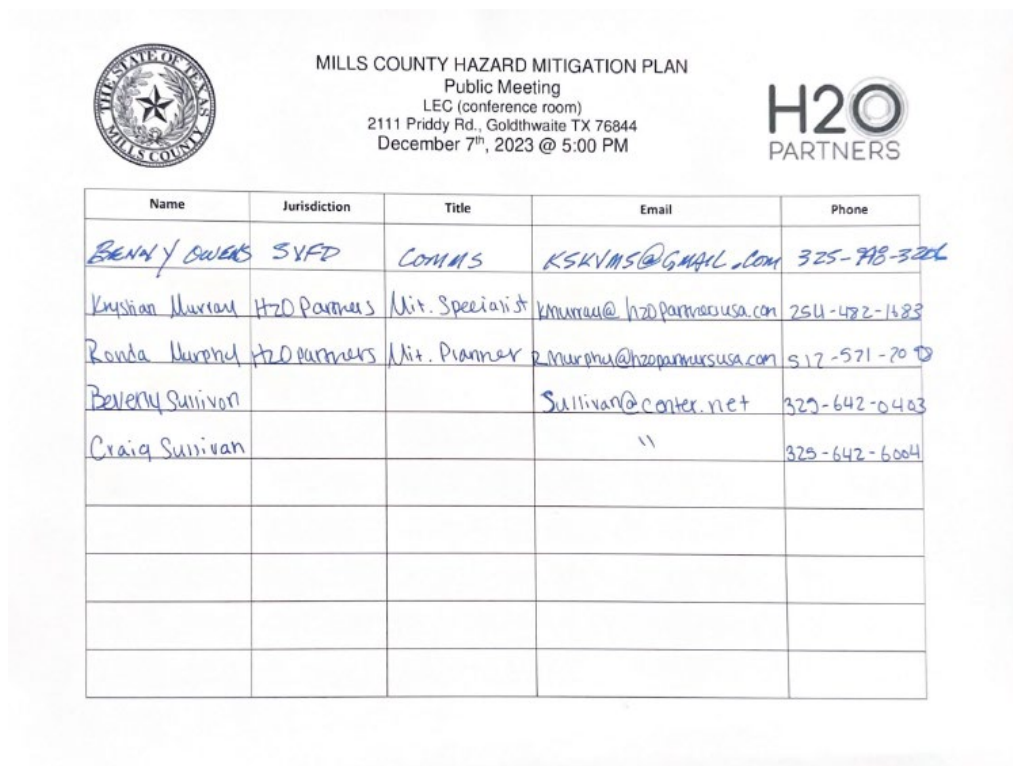 THE STATE OF TEXAS
MILLS COUNTY
MILLS COUNTY HAZARD MITIGATION PLAN
Public Meeting
LEC (conference room)
2111 Priddy Rd., Goldthwaite TX 76844
December 7th, 2023 @ 5:00 PM
H2O
PARTNERS
Name Jurisdiction Title Email Phone
BENNY OWENS SVFD COMMS KSKVMS@GMAIL.COM
Krystian Murray H2O Partners Mit. Specialist kmurray@h2opartnersusa.com 254-482-1683
Ronda Murphy H2O partners Mit. Planner RMurphy@h2opartnersusa.com
Beverly Sullivan Sullivan@centex.net 325-642-0403
Craig Sullivan " 325-642-6004